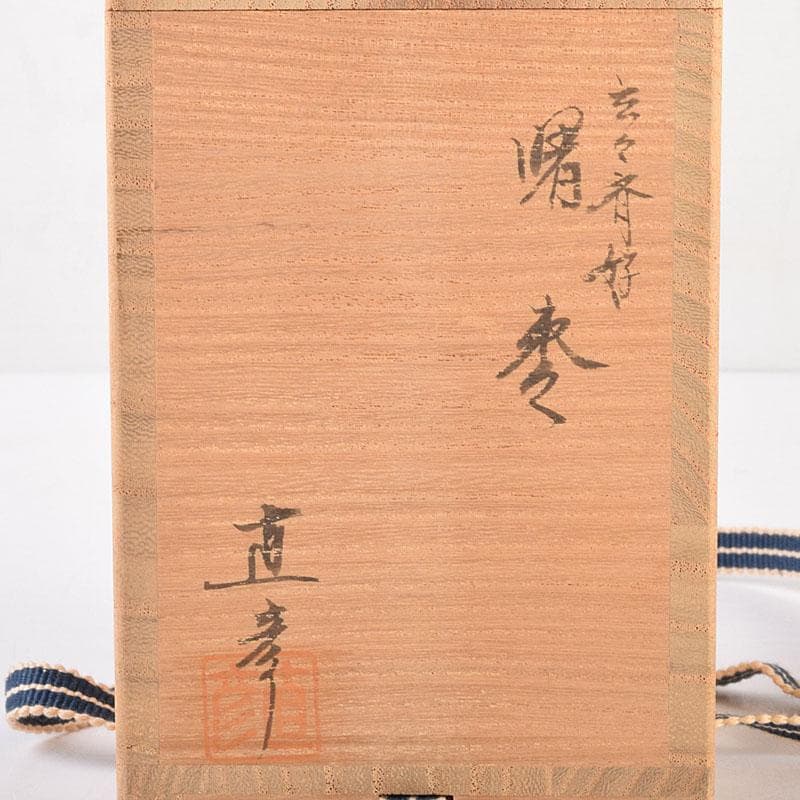 玄々斎好
曙
棗
直彦